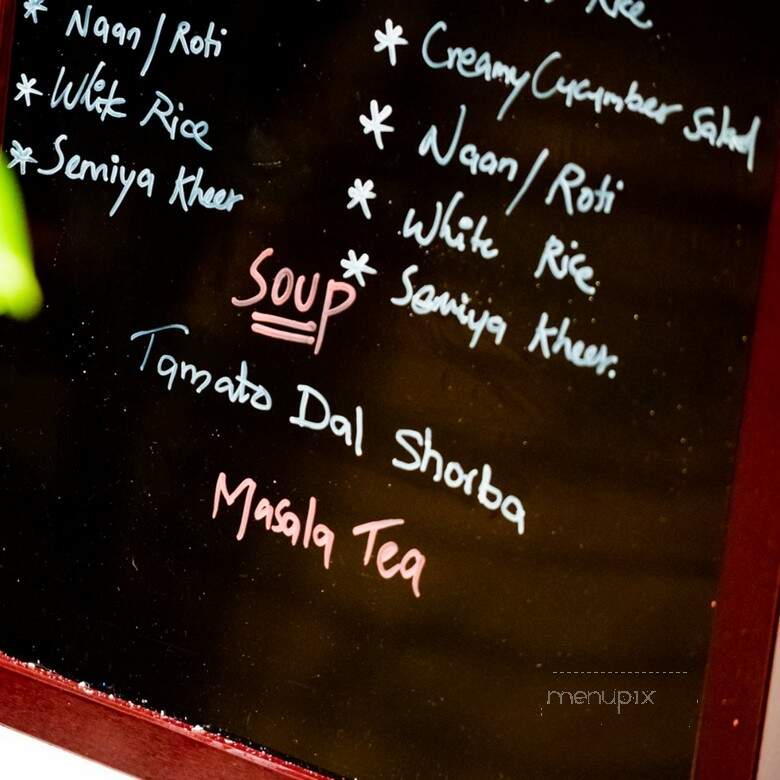 * Naan / Roti
* White Rice
* Semiya Kheer
Rice
* Creamy Cucumber Salad
* Naan / Roti
* White Rice
* Semiya Kheer.
SOUP
Tamato Dal Shorba
Masala Tea
menupix